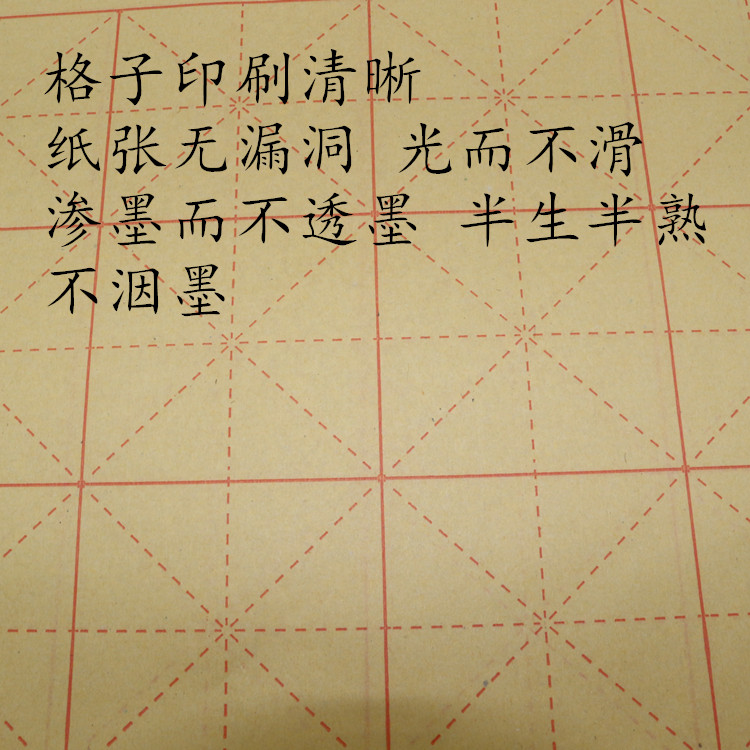 格子印刷清晰
纸张无漏洞 光而不滑
渗墨而不透墨 半生半熟
不洇墨